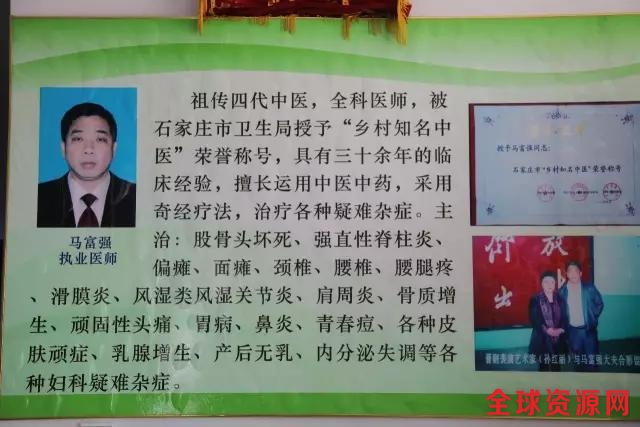 祖传四代中医，全科医师，被
石家庄市卫生局授予“乡村知名中
医”荣誉称号，具有三十余年的临
床经验，擅长运用中医中药，采用
奇经疗法，治疗各种疑难杂症。主
治：股骨头坏死、强直性脊柱炎、
偏瘫、面瘫、颈椎、腰椎、腰腿疼
、滑膜炎、风湿类风湿关节炎、肩周炎、骨质增
生、顽固性头痛、胃病、鼻炎、青春痘、各种皮
肤顽症、乳腺增生、产后无乳、内分泌失调等各
种妇科疑难杂症。
马富强
执业医师
授予马富强同志：
石家庄市“乡村知名中医”荣誉称号
晋剧表演艺术家（孙红丽）与马富强大夫合影留
全球资源网